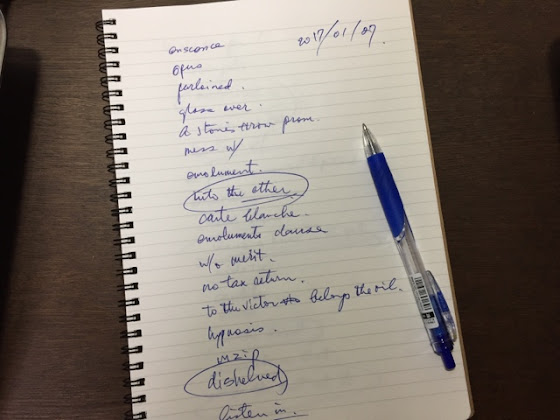 ensconce
2017/01/27.
opus
perloined.
gloss over.
a stone's throw from.
mess w/
emolument.
into the other.
carte blanche.
emoluments clause
w/o merit.
no tax return.
to the victor belongs the oil.
hypnosis.
dishelved
listen in.